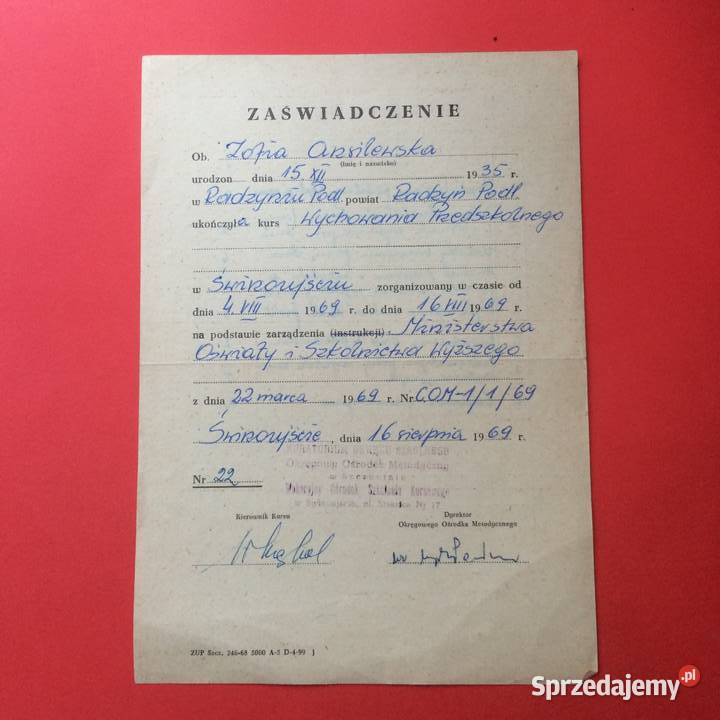 ZAŚWIADCZENIE
Ob. Zofia
(imię i nazwisko)
urodzon dnia 15.XII 1935 r.
w Radzyniu Podl. powiat Radzyń Podl.
ukończyła kurs Wychowania Przedszkolnego
w Świnoujściu zorganizowany w czasie od
dnia 4.VIII 1969 r. do dnia 16 VIII 1969 r.
na podstawie zarządzenia (instrukcji). Ministerstwa
Oświaty i Szkolnictwa Wyższego
z dnia 22 marca 1969 r. Nr C.O.M-1/1/69
Świnoujście, dnia 16 sierpnia 1969 r.
Okręgowy Ośrodek Metodyczny
w Szczecinie
Nr 22
Wakacyjny Ośrodek
Kierownik Kursu
Dyrektor
Okręgowego Ośrodka Metodycznego
ZUP Szcz. 246-68 5000 A-5 D-4-99
Sprzedajemy.pl